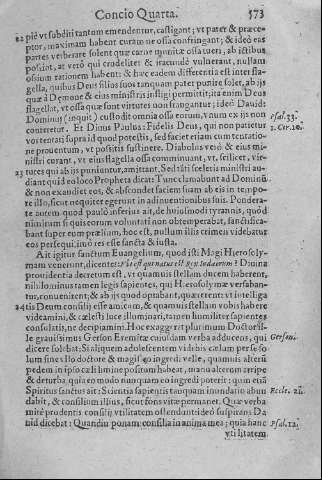 Concio Quarta. 573
22 piè vt subditi tantum emendentur, castigent; vt pater & præce-
ptor, maximam habent curam ne ossa confringant; & ideò eas
partes verberare solent quæ carne munitæ ossa tueri, ab ictibus
possint, at verò qui crudeliter & iracundè vulnerant, nullam
ossium rationem habent: & hæc eadem differentia est inter fla-
gella, quibus Deus filios suos tanquam pater punire solet, ab ijs
quæ à Dęmone & eius ministris infligi permittit; ita enim Deus
flagellat, vt ossa quæ sunt virtutes non frangantur; ideò Dauid:
Dominus (inquit) custodit omnia ossa eorum, vnum ex ijs non Psal. 33.
conteretur. Et Diuus Paulus: Fidelis Deus, qui non patietur 1. Cor. 10.
vos tentari supra id quod potestis, sed faciet etiam cum tentatio-
ne prouentum, vt possitis sustinere. Diabolus verò & eius mi-
nistri curant, vt eius flagella ossa comminuant, vt, scilicet, vir-
23 tutes qui ab ijs puniuntur, amittant. Sed isti sceletis ministri au-
diant quid eo loco Propheta dicat: Tunc clamabunt ad Dominũ
& non exaudiet eos, & abscondet faciem suam ab eis in tempo-
re illo, sicut nequiter egerunt in adinuentionibus suis. Pondera-
te autem quod paulò inferius ait, de huiusmodi tyrannis, quòd
nimirum si quis eorum voluntati non obtemperabat, sanctifica-
bant super eum prælium, hoc est, nullum illis crimen videbatur
eos persequi, imò res esse sancta & iusta.
Ait igitur sanctum Euangelium, quod isti Magi Hierosoly-
mam venerunt, dicentes: Vbi est qui natus est Rex Iudæorum? Diuina
prouidentia decretum est, vt quamuis stellam ducem haberent,
nihilominus tamen legis sapientes, qui Hierosolymæ versaban-
tur, conuenirent; & ab ijs quod optabant, quærerent: vt intelliga
24 tis Deum consilij esse amicam, & quamuis stellam vobis habere
videamini, & cælesti luce illuminari, tamen humiliter sapientes
consulatis, ne decipiamini. Hoc exaggerit plurimum Doctor il-
le grauissimus Gerson Eremitæ cuiusdam verba adducens, qui Gerson.
dicere solebat: Si aliquem adolescentem videbis cælum per se so-
lum sine illo doctore & magistro ingredi velle, quamuis alterũ
pedem in ipso cæli limine positum habeat, manu alterum arripe
& deturba, quia eo modo nunquam eo ingredi poterit: quin etiã
Spiritus sanctus ait: Scientia sapientis tanquam inundatio abun Eccle. 21.
dabit, & consilium illius, sicut fons vitæ permanet. Quæ verba
mitè prodentis consilij vtilitatem ostendunt ideò suspirans Da
uid dicebat: Quandiu ponam consilia in anima mea; quia hanc Psal. 12.
vtilitatem